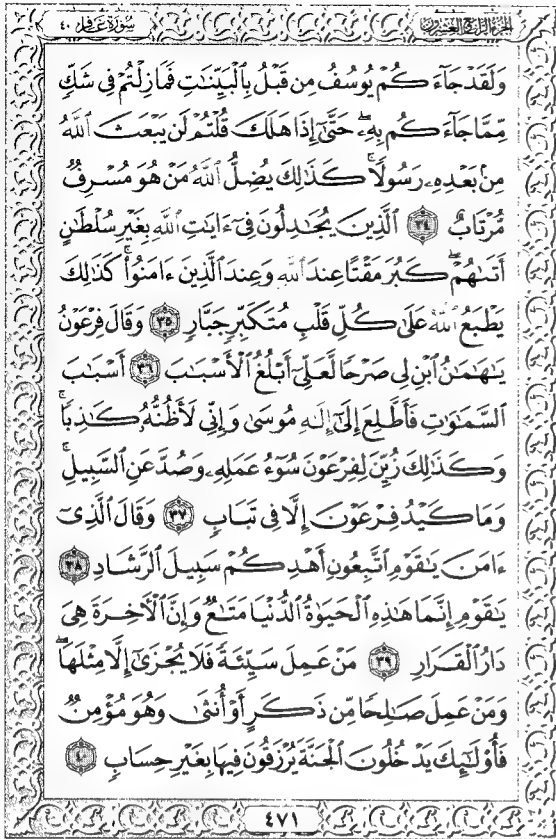 سورة غافر ٤٠ الجزء الرابع والعشرون
وَلَقَدْ جَآءَكُمْ يُوسُفُ مِن قَبْلُ بِٱلْبَيِّنَٰتِ فَمَا زِلْتُمْ فِى شَكٍّ
مِّمَّا جَآءَكُم بِهِۦ ۖ حَتَّىٰٓ إِذَا هَلَكَ قُلْتُمْ لَن يَبْعَثَ ٱللَّهُ
مِنۢ بَعْدِهِۦ رَسُولًا ۚ كَذَٰلِكَ يُضِلُّ ٱللَّهُ مَنْ هُوَ مُسْرِفٌ
مُّرْتَابٌ ٣٤ ٱلَّذِينَ يُجَٰدِلُونَ فِىٓ ءَايَٰتِ ٱللَّهِ بِغَيْرِ سُلْطَٰنٍ
أَتَىٰهُمْ ۖ كَبُرَ مَقْتًا عِندَ ٱللَّهِ وَعِندَ ٱلَّذِينَ ءَامَنُوا۟ ۚ كَذَٰلِكَ
يَطْبَعُ ٱللَّهُ عَلَىٰ كُلِّ قَلْبِ مُتَكَبِّرٍ جَبَّارٍ ٣٥ وَقَالَ فِرْعَوْنُ
يَٰهَٰمَٰنُ ٱبْنِ لِى صَرْحًا لَّعَلِّىٓ أَبْلُغُ ٱلْأَسْبَٰبَ ٣٦ أَسْبَٰبَ
ٱلسَّمَٰوَٰتِ فَأَطَّلِعَ إِلَىٰٓ إِلَٰهِ مُوسَىٰ وَإِنِّى لَأَظُنُّهُۥ كَٰذِبًا ۚ
وَكَذَٰلِكَ زُيِّنَ لِفِرْعَوْنَ سُوٓءُ عَمَلِهِۦ وَصُدَّ عَنِ ٱلسَّبِيلِ ۚ
وَمَا كَيْدُ فِرْعَوْنَ إِلَّا فِى تَبَابٍ ٣٧ وَقَالَ ٱلَّذِىٓ
ءَامَنَ يَٰقَوْمِ ٱتَّبِعُونِ أَهْدِكُمْ سَبِيلَ ٱلرَّشَادِ ٣٨
يَٰقَوْمِ إِنَّمَا هَٰذِهِ ٱلْحَيَوٰةُ ٱلدُّنْيَا مَتَٰعٌ وَإِنَّ ٱلْءَاخِرَةَ هِىَ
دَارُ ٱلْقَرَارِ ٣٩ مَنْ عَمِلَ سَيِّئَةً فَلَا يُجْزَىٰٓ إِلَّا مِثْلَهَا ۖ
وَمَنْ عَمِلَ صَٰلِحًا مِّن ذَكَرٍ أَوْ أُنثَىٰ وَهُوَ مُؤْمِنٌ
فَأُو۟لَٰٓئِكَ يَدْخُلُونَ ٱلْجَنَّةَ يُرْزَقُونَ فِيهَا بِغَيْرِ حِسَابٍ ٤٠
٤٧١